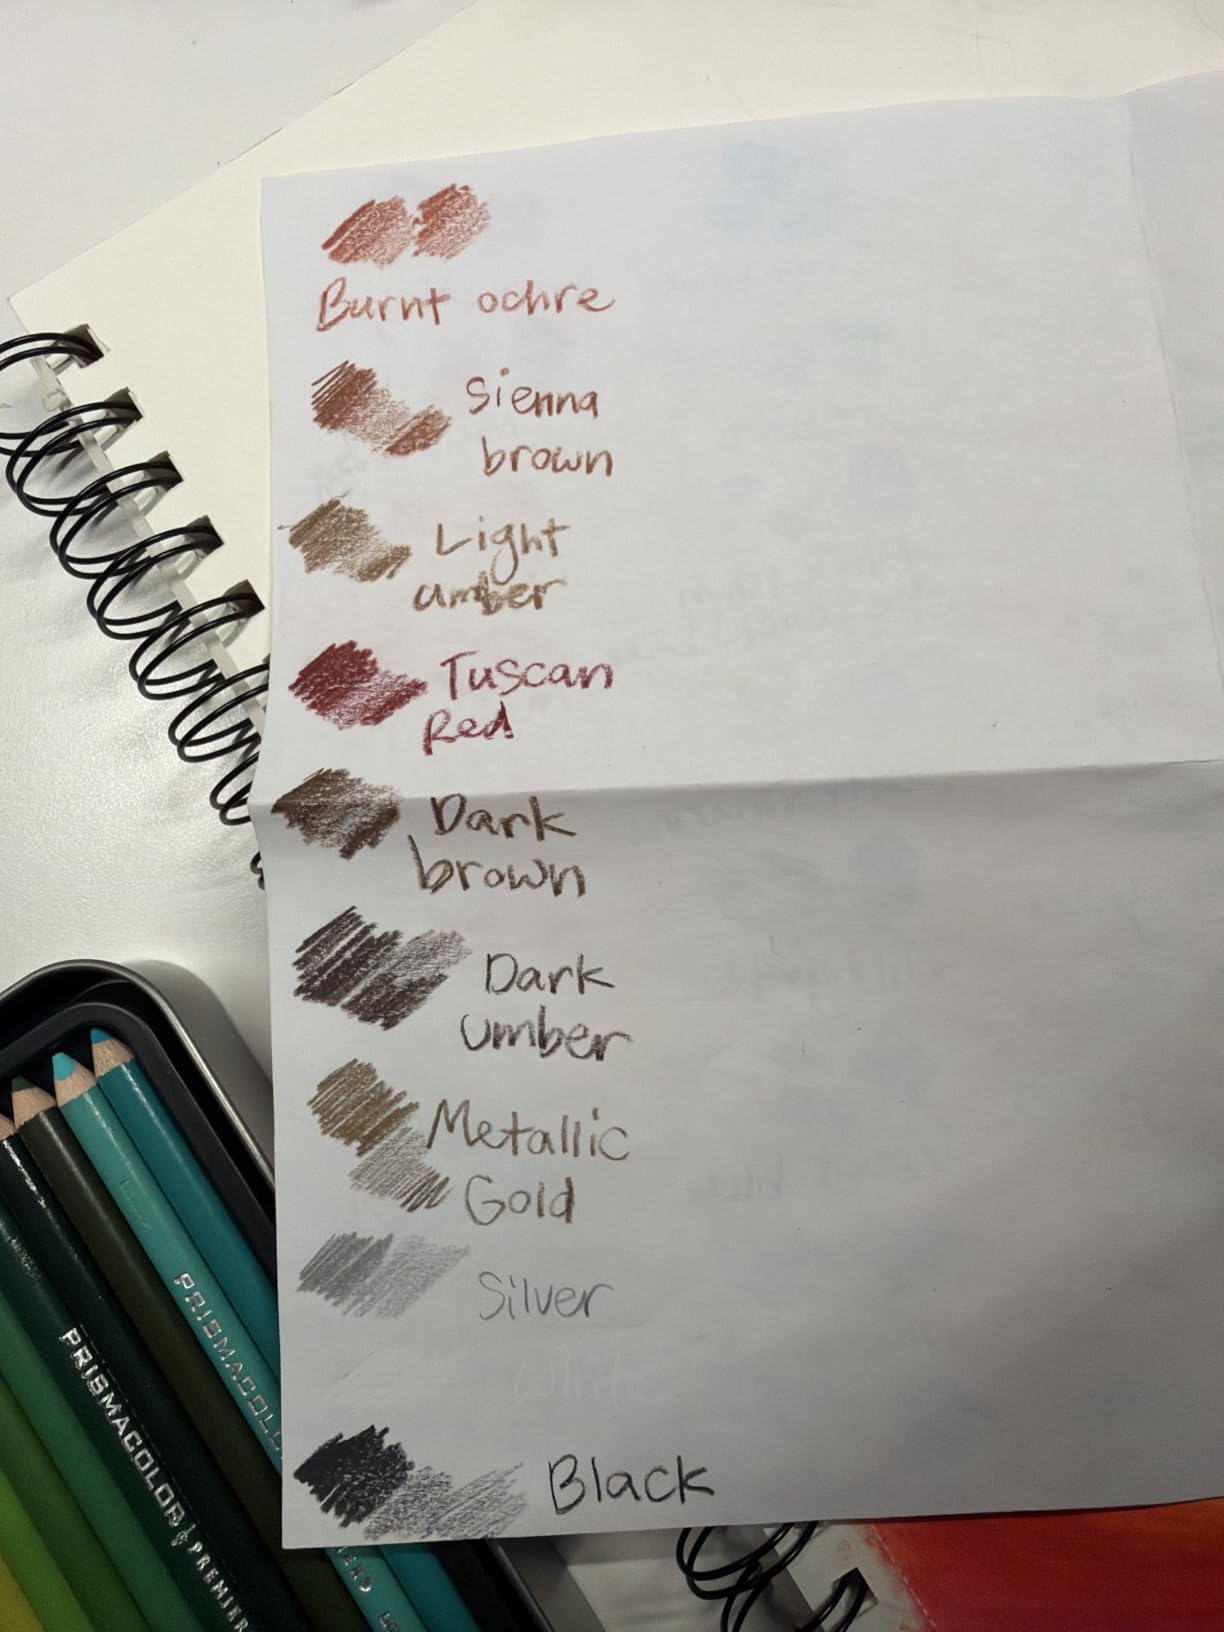 Burnt ochre
Sienna
brown
Light
umber
Tuscan
Red
Dark
brown
Dark
umber
Metallic
Gold
Silver
White
Black
PRISMACOLOR
PRISMACOLOR PREMIER